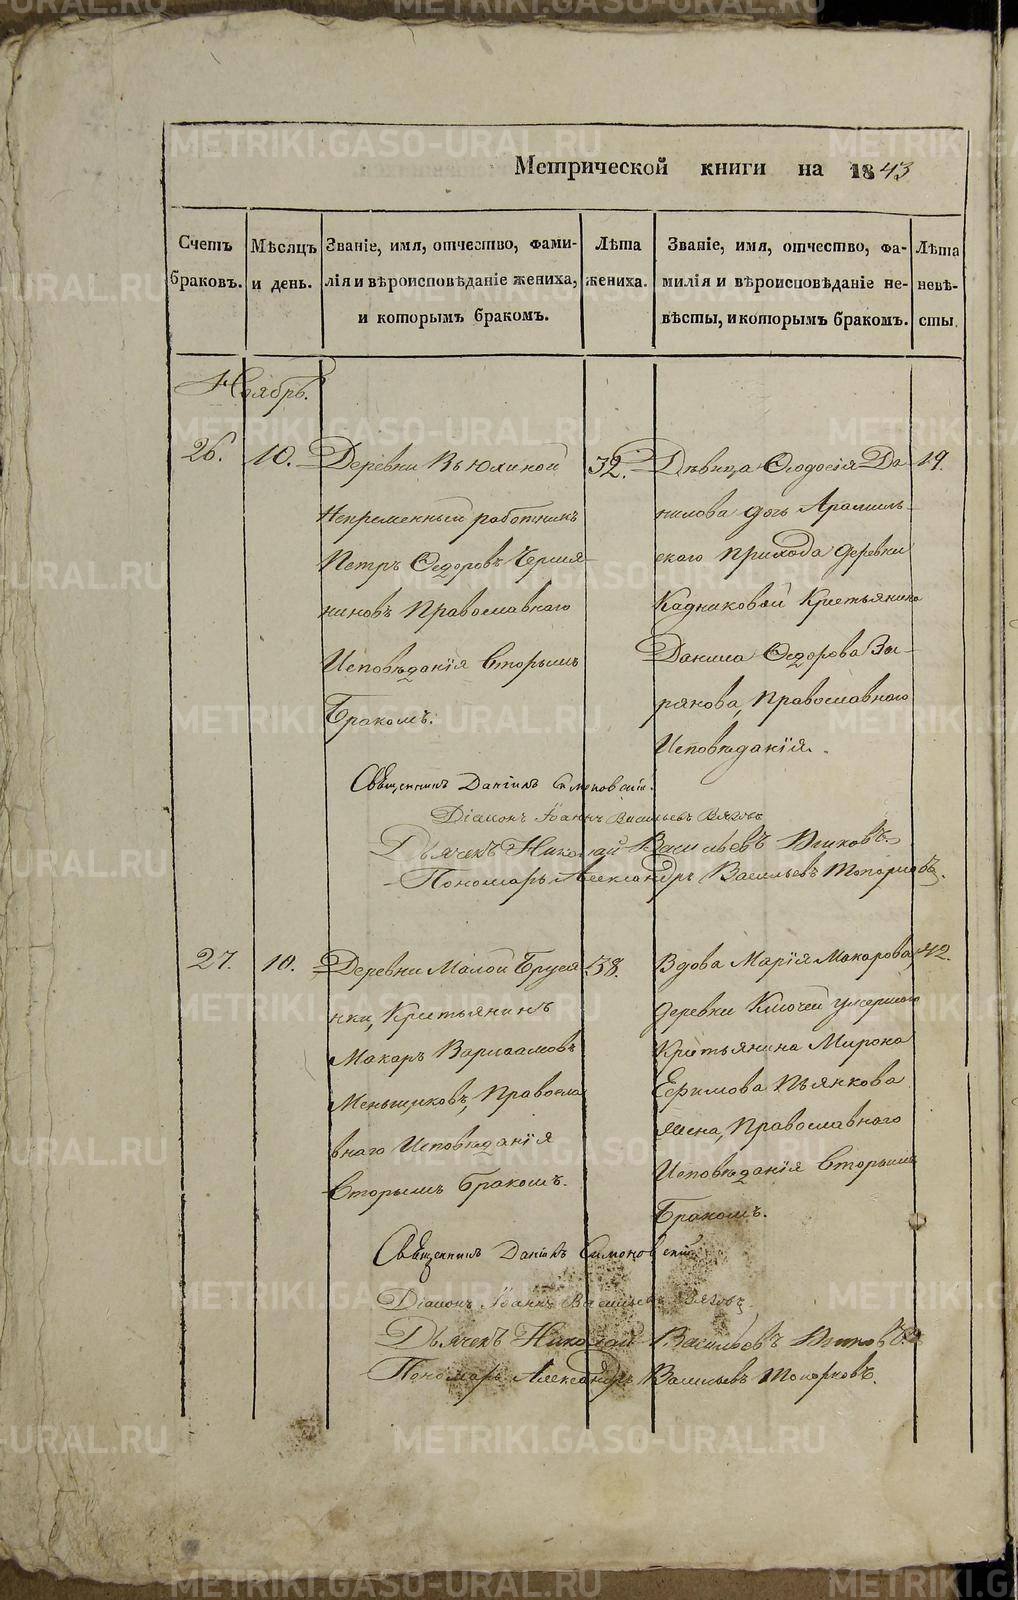 METRIKI.GASO-URAL.RU
Метрической книги на 1843
Счетъ браковъ.
Мѣсяцъ и день.
Званіе, имя, отчество, фами-
лія и вѣроисповѣданіе жениха,
и которымъ бракомъ.
Лѣта
жениха.
Званіе, имя, отчество, фа-
милія и вѣроисповѣданіе не-
вѣсты, и которымъ бракомъ.
Лѣта
невѣ-
сты.
Ноябрь.
26.
10.
Деревни Вьюхиной
Непременный работникъ
Петръ Ѳедоровъ
Православнаго
Исповѣданія вторымъ
Бракомъ.
32.
Дѣвица Ѳеодосія Да-
нилова дочь Арамиль-
скаго прихода деревни
Кадниковой Крестьянина
Данила Ѳедорова Зы-
рянова, Православнаго
Исповѣданія.
19.
Священникъ Даніилъ Симоновскій.
Діаконъ Іоаннъ Васильевъ
Дьячекъ Николай Васильевъ
Пономарь Александръ Васильевъ Топорковъ.
27.
10.
Деревни Малой Бруся
нки, Крестьянинъ
Макаръ Варлаамовъ
Меньшиковъ, Правосла
внаго Исповѣданія
вторымъ бракомъ.
38.
Вдова Марія Макарова,
деревни Ключей умершаго
Крестьянина Мирона
Ефимова Пьянкова
жена, Православнаго
Исповѣданія вторымъ
Бракомъ.
42.
Священникъ Даніилъ Симоновскій.
Діаконъ Іоаннъ Васильевъ
Дьячекъ Николай Васильевъ
Пономарь Александръ Васильевъ Топорковъ.